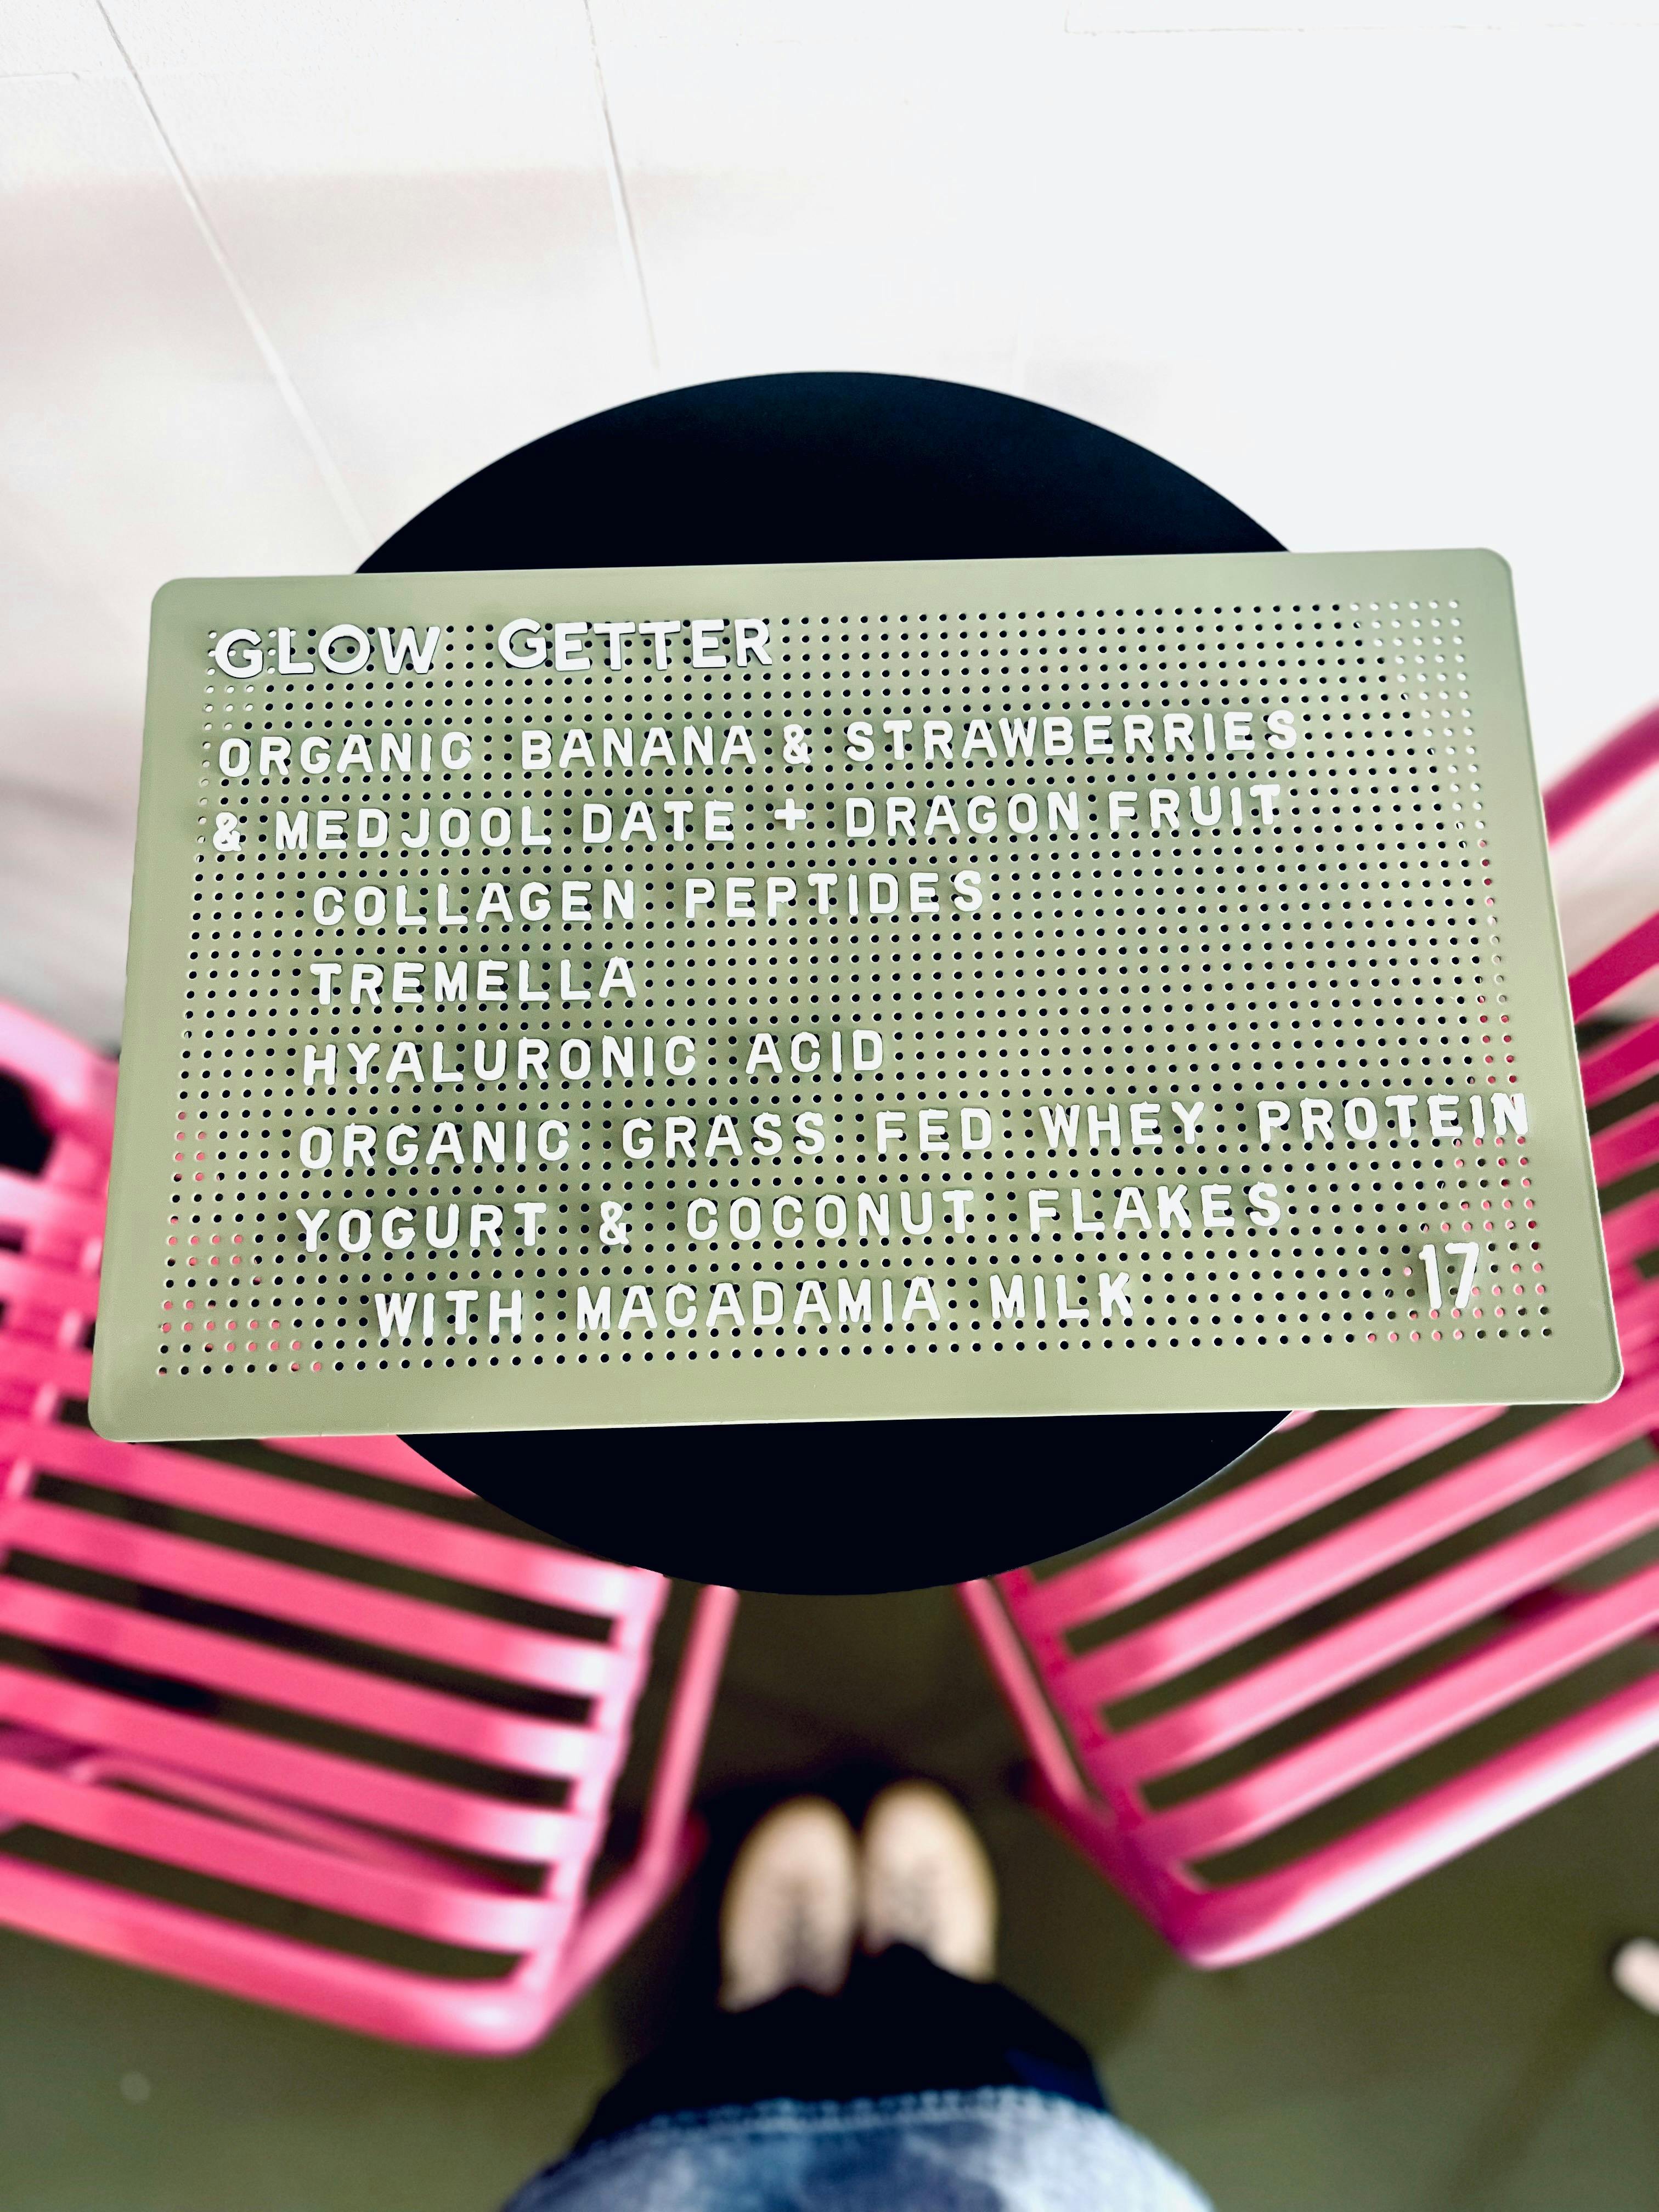 GLOW GETTER
ORGANIC BANANA & STRAWBERRIES
& MEDJOOL DATE + DRAGON FRUIT
COLLAGEN PEPTIDES
TREMELLA
HYALURONIC ACID
ORGANIC GRASS FED WHEY PROTEIN
YOGURT & COCONUT FLAKES
WITH MACADAMIA MILK 17